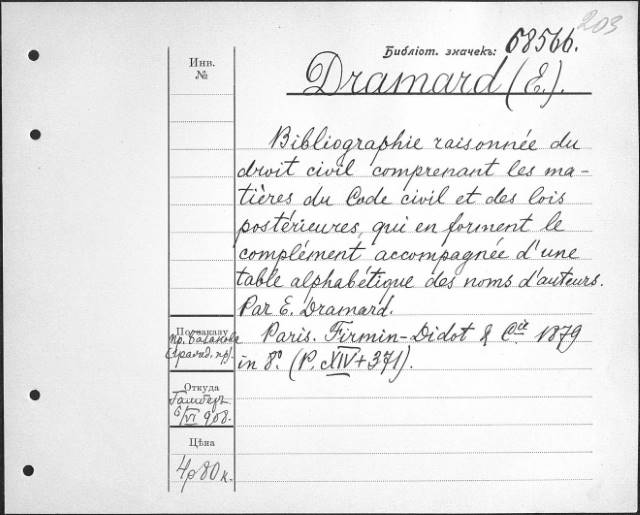 203
Библіот. значекъ: 68566.
Инв.
№
Dramard (E.).
Bibliographie raisonnée du
droit civil comprenant les ma-
tières du Code civil et des lois
postérieures, qui en forment le
complément, accompagnée d'une
table alphabétique des noms d'auteurs.
Par E. Dramard.
Paris. Firmin-Didot & Cie. 1879
in 8º. (P. XIV+371).
По заказу
пр.
Откуда
6/VI 908.
Цѣна
4р 80 к.